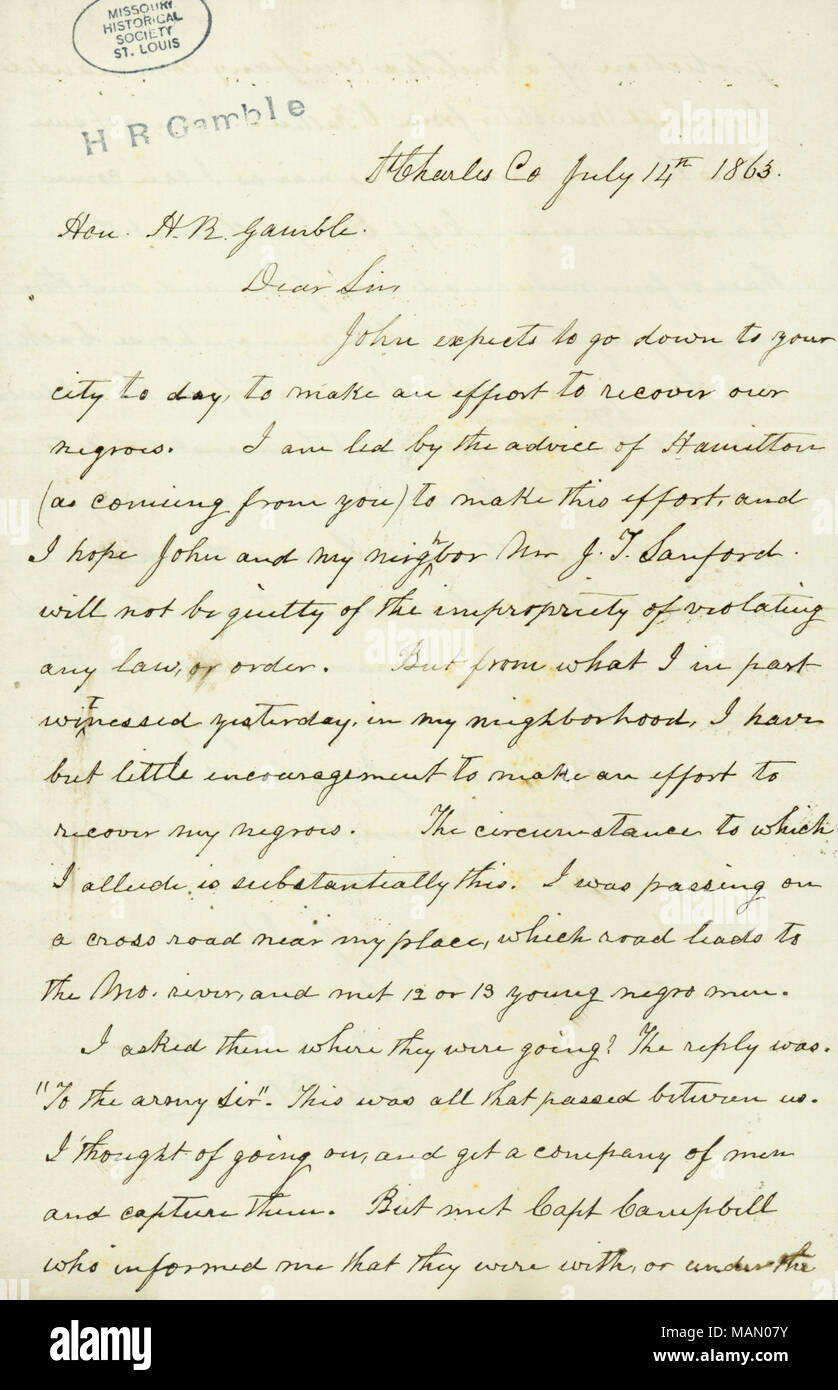 MISSOURI
HISTORICAL
SOCIETY
ST. LOUIS
H R Gamble
St Charles Co July 14th 1863.
Hon. H. R. Gamble.
Dear Sir,
John expects to go down to your
city to day, to make an effort to recover our
negroes. I am led by the advice of Hamilton
(as coming from you) to make this effort, and
I hope John and my neighbor Mr J. T. Sanford.
will not be guilty of the impropriety of violating
any law, or order. But from what I in part
witnessed yesterday, in my neighborhood, I have
but little encouragement to make an effort to
recover my negroes. The circumstance to which
I allude, is substantially this. I was passing on
a cross road near my place, which road leads to
the Mo. river, and met 12 or 13 young negro men.
I asked them where they were going? The reply was.
"To the army Sir". This was all that passed between us.
I thought of going on, and get a company of men
and capture them. But met Capt Campbell
who informed me that they were with, or under the
alamy
Image ID: MAN07Y
www.alamy.com